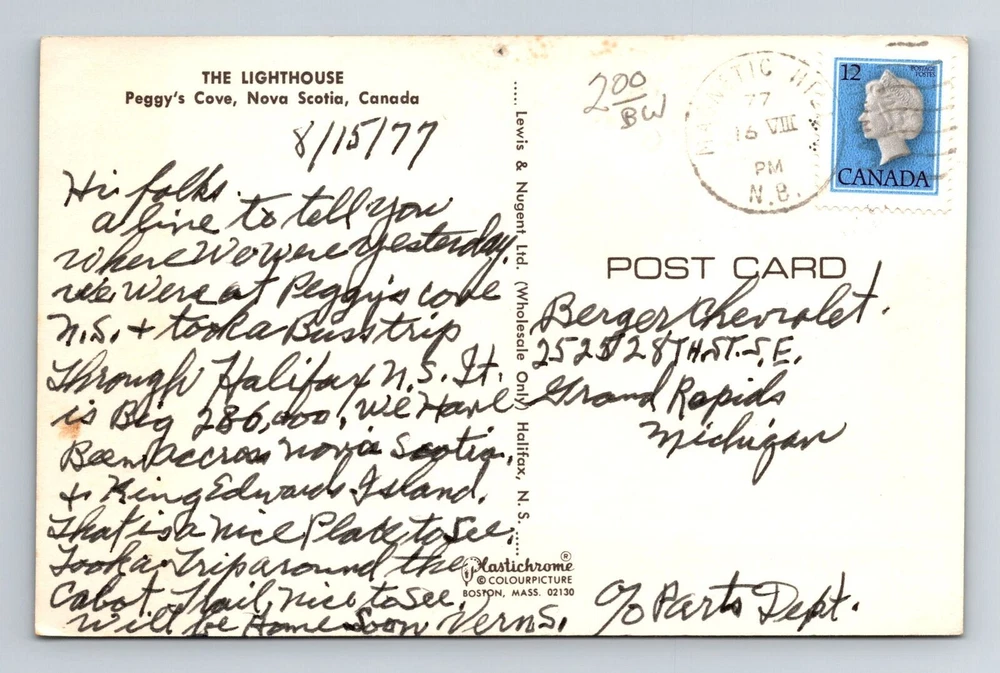 THE LIGHTHOUSE
Peggy's Cove, Nova Scotia, Canada
8/15/77
Hi folks.
a line to tell you
where We were yesterday.
We were at Peggy's cove
N.S. + took a Buss trip
Through Halifax N.S. It.
is Big 286,000! We Have
Been accross Nova Scotia,
+ King Edwards Island.
That is a nice Place to See.
Took a Trip around the
Cabot Trail, Nice to See.
Will be Home Soon Verns.
Lewis & Nugent Ltd. (Wholesale Only) Halifax, N. S.
Plastichrome ®
© COLOURPICTURE
BOSTON, MASS. 02130
200
BW
77
16 VIII
PM
N.B.
12
POSTAGE
POSTES
CANADA
POST CARD
Berger Chevrolet.
2525 28TH. ST. S.E.
Grand Rapids
Michigan
c/o Parts Dept.